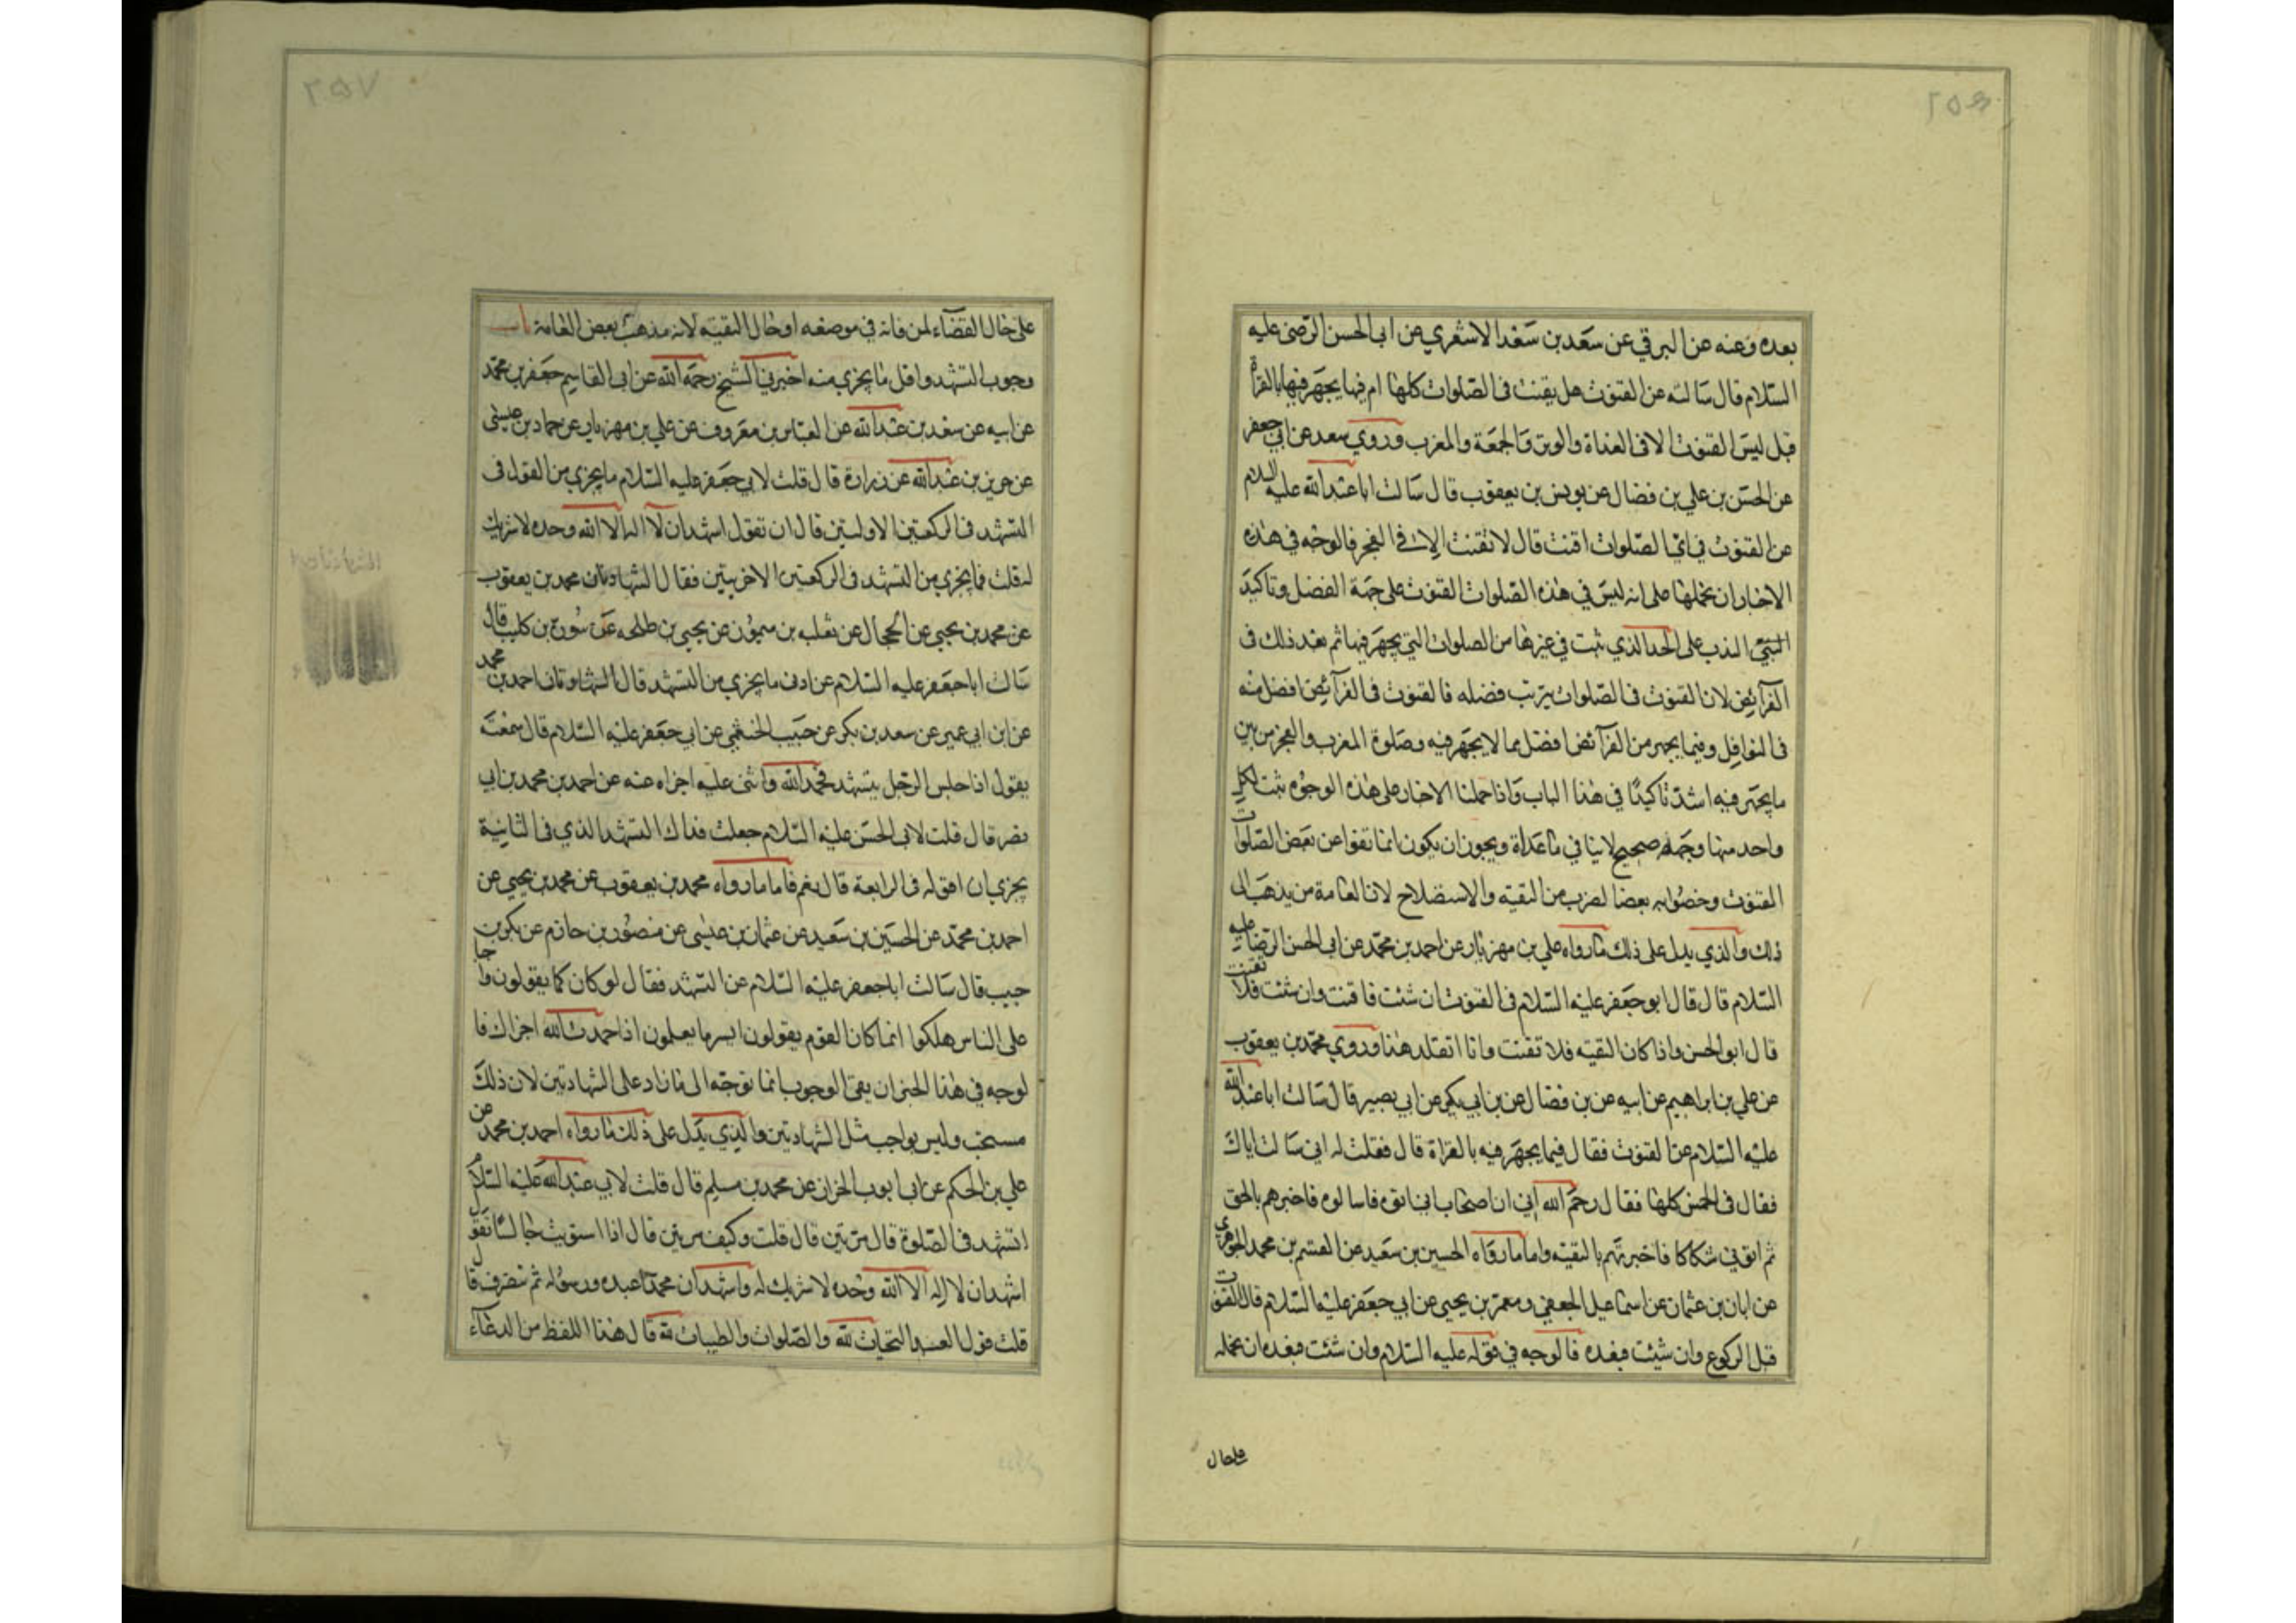 ٢٥٦
بعده وعنه عن البرقي عن سعد بن سعد الاشعري عن ابى الحسن الرضى عليه
السّلام قال سالته عن القنوت هل يقنت فى الصّلوات كلها ام فيها يجهر فيها بالقراة
قبل ليس القنوت الا فى الغداة والوتر والجمعة والمغرب وروي سعد عن ابي جعفر
عن الحسن بن علي بن فضال عن يونس بن يعقوب قال سالت ابا عبد الله عليه السلام
عن القنوت في اىّ الصّلوات اقنت قال لا تقنت الا في الفجر فالوجه في هذه
الاخبار ان نحملها على انه ليس في هذه الصّلوات القنوت على جهة الفضل وتاكيد
الندب على الحد الذي ثبت في غيرها من الصلوات التي يجهر فيها ثم بعد ذلك فى
الفرآئض لان القنوت فى الصّلوات يترتب فضله فالقنوت فى الفرآئض افضل منه
فى النوافل وفيما يجهر من الفرآئض افضل مما لا يجهر فيه وصلوة المغرب والفجر من بين
ما يجهر فيه اشد تاكيدًا في هذا الباب واذا حملنا الاخبار على هذه الوجوه ثبت لكل
واحد منها وجه صحيح لا ينافي ما عداه ويجوز ان يكون انما نفوا عن بعض الصّلوات
القنوت وخصّوا به بعضا لضرب من التقية والاستصلاح لان العامة من يذهب الى
ذلك والذي يدل على ذلك ما رواه علي بن مهزيار عن احمد بن محمّد عن ابى الحسن الرّضا عليه
السّلام قال قال ابو جعفر عليه السّلام فى القنوت ان شئت فاقنت وان شئت فلا تقنت
قال ابو الحسن واذا كان التقية فلا تقنت وانا اتقلد هذا وروي محمّد بن يعقوب
عن علي بن ابراهيم عن ابيه عن بن فضال عن بن ابي بكير عن ابي بصير قال سالت ابا عبد الله
عليه السّلام عن القنوت فقال فيما يجهر فيه بالقراة قال فقلت له اني سالت اباك
فقال فى الخمس كلها فقال رحم الله ابي ان اصحاب ابي اتوه فسالوه فاخبرهم بالحق
ثم اتوني شكاكا فاخبرتهم بالتقية واما ما رواه الحسين بن سعيد عن القسم بن محمد الجوهري
عن ابان بن عثمان عن اسماعيل الجعفي ومعمر بن يحيى عن ابي جعفر عليه السّلام قال القنوت
قبل الركوع وان شئت فبعده فالوجه في قوله عليه السّلام وان شئت فبعده ان نحمله
على حال
٢٥٧
على حال القضآء لمن فاته في موضعه او حال التقيه لانه مذهب بعض العامة باب
وجوب التشهد واقل ما يجزي منه اخبرني الشيخ رحمه الله عن ابى القاسم جعفر بن محمّد
عن ابيه عن سعد بن عبد الله عن العباس بن معروف عن علي بن مهزيار عن حماد بن عيسى
عن حريز بن عبد الله عن زرارة قال قلت لابي جعفر عليه السّلام ما يجزي من القول فى
التشهد فى الركعتين الاولتين قال ان تقول اشهد ان لا اله الا الله وحده لا شريك
له قلت فما يجزي من التشهد فى الركعتين الاخريتين فقال الشهادتان محمد بن يعقوب
عن محمد بن يحيى عن الحجال عن ثعلبه بن ميمون عن يحيى بن طلحه عن سورة بن كليب قال
سالت ابا جعفر عليه السّلام عن ادنى ما يجزي من التشهد قال الشهادتان احمد بن محمد
عن ابن ابي عمير عن سعد بن بكر عن حبيب الخثعمي عن ابي جعفر عليه السّلام قال سمعته
يقول اذا جلس الرّجل يتشهد فحمد الله واثنى عليه اجزاه عنه عن احمد بن محمد بن ابي
نصر قال قلت لابى الحسن عليه السّلام جعلت فداك التشهد الذي فى الثانية
يجزي ان اقوله فى الرابعة قال نعم فاما ما رواه محمد بن يعقوب عن محمد بن يحيى عن
احمد بن محمّد عن الحسين بن سعيد عن عثمان بن عيسى عن منصور بن حازم عن بكر بن
حبيب قال سالت ابا جعفر عليه السّلام عن التشهد فقال لو كان كما يقولون واجبا
على الناس هلكوا انما كان القوم يقولون ايسر ما يعلمون اذا حمدت الله اجزاك فا
لوجه في هذا الخبر ان نفى الوجوب انما توجّه الى ما زاد على الشهادتين لان ذلك
مستحب وليس بواجب مثل الشهادتين والذي يدل على ذلك ما رواه احمد بن محمد عن
علي بن الحكم عن ابي ايوب الخزاز عن محمد بن مسلم قال قلت لابي عبد الله عليه السّلام
التشهد فى الصّلوة قال مرّتين قال قلت وكيف مرتين قال اذا استويت جالسًا فقل
اشهد ان لا اله الا الله وحده لا شريك له واشهد ان محمدًا عبده ورسوله ثم تنصرف قال
قلت قول العبد التحيات لله والصّلوات والطيبات لله قال هذا اللفظ من الدعآء